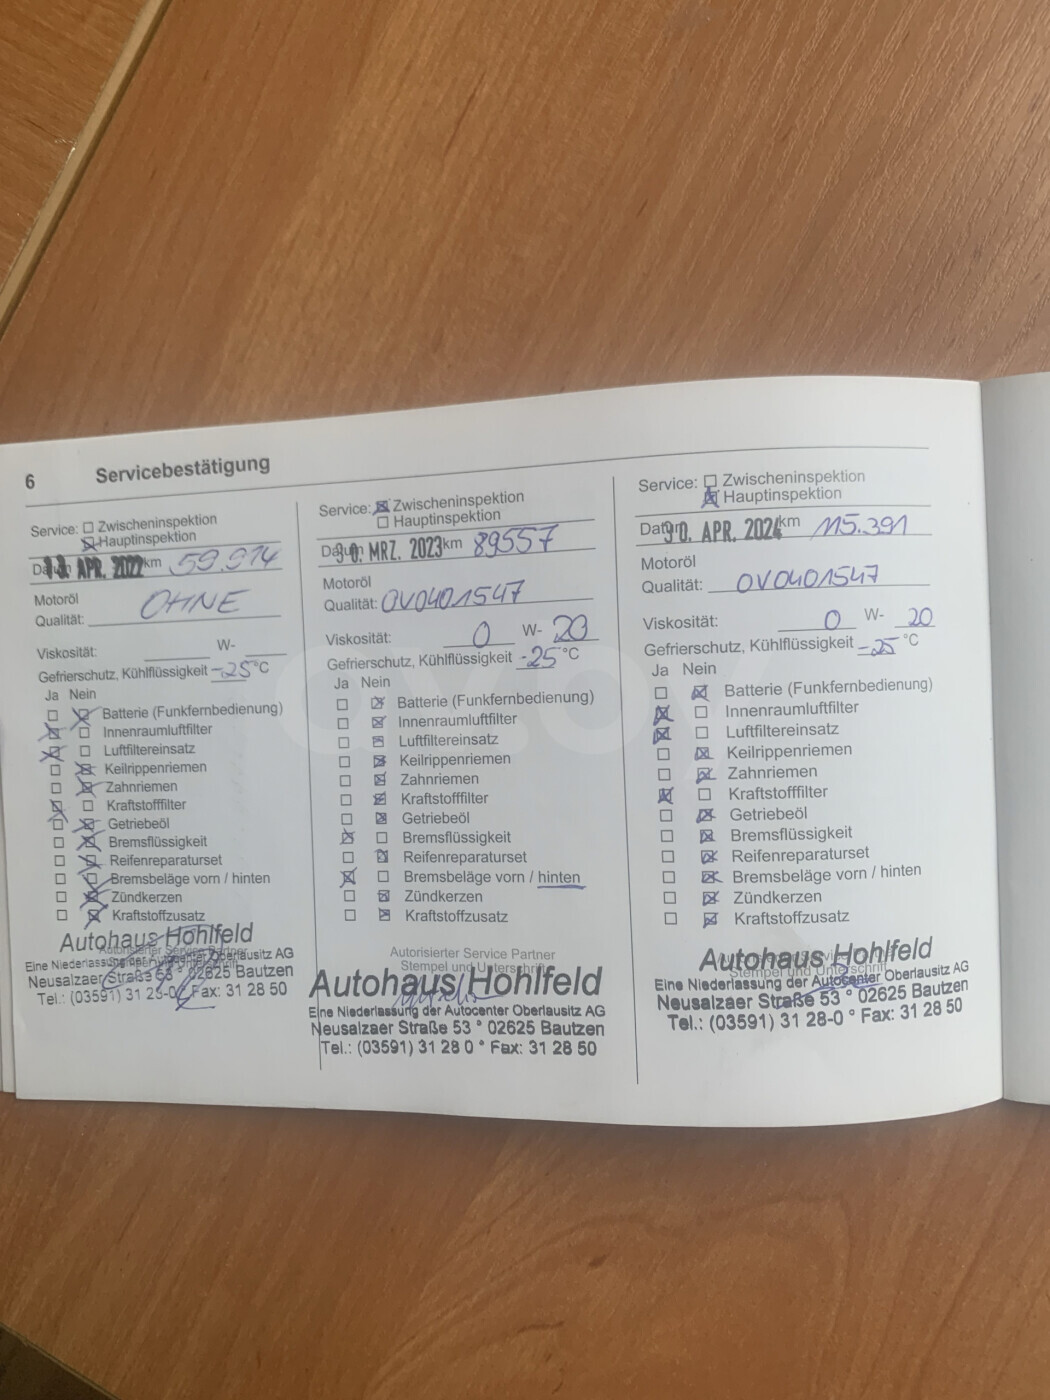 6 Servicebestätigung
Service: Zwischeninspektion
Hauptinspektion
Datum APR. 2022 km 59.914
Motoröl
Qualität: OHNE
Viskosität: W-
Gefrierschutz, Kühlflüssigkeit -25 °C
Ja Nein
Batterie (Funkfernbedienung)
Innenraumluftfilter
Luftfiltereinsatz
Keilrippenriemen
Zahnriemen
Kraftstofffilter
Getriebeöl
Bremsflüssigkeit
Reifenreparaturset
Bremsbeläge vorn / hinten
Zündkerzen
Kraftstoffzusatz
Autorisierter Service Partner
Autohaus Hohlfeld
Eine Niederlassung der Autocenter Oberlausitz AG
Neusalzaer Straße 53 ° 02625 Bautzen
Tel.: (03591) 31 28-0 Fax: 31 28 50
Service: Zwischeninspektion
Hauptinspektion
Datum 30. MRZ. 2023 km 89557
Motoröl
Qualität: OV0401547
Viskosität: 0 W- 20
Gefrierschutz, Kühlflüssigkeit -25 °C
Ja Nein
Batterie (Funkfernbedienung)
Innenraumluftfilter
Luftfiltereinsatz
Keilrippenriemen
Zahnriemen
Kraftstofffilter
Getriebeöl
Bremsflüssigkeit
Reifenreparaturset
Bremsbeläge vorn / hinten
Zündkerzen
Kraftstoffzusatz
Autorisierter Service Partner
Stempel und Unterschrift
Autohaus Hohlfeld
Eine Niederlassung der Autocenter Oberlausitz AG
Neusalzaer Straße 53 ° 02625 Bautzen
Tel.: (03591) 31 28 0 ° Fax: 31 28 50
Service: Zwischeninspektion
Hauptinspektion
Datum 30. APR. 2024 km 115.391
Motoröl
Qualität: OV0401547
Viskosität: 0 W- 20
Gefrierschutz, Kühlflüssigkeit -25 °C
Ja Nein
Batterie (Funkfernbedienung)
Innenraumluftfilter
Luftfiltereinsatz
Keilrippenriemen
Zahnriemen
Kraftstofffilter
Getriebeöl
Bremsflüssigkeit
Reifenreparaturset
Bremsbeläge vorn / hinten
Zündkerzen
Kraftstoffzusatz
Autohaus Hohlfeld
Stempel und Unterschrift
Eine Niederlassung der Autocenter Oberlausitz AG
Neusalzaer Straße 53 ° 02625 Bautzen
Tel.: (03591) 31 28-0 ° Fax: 31 28 50